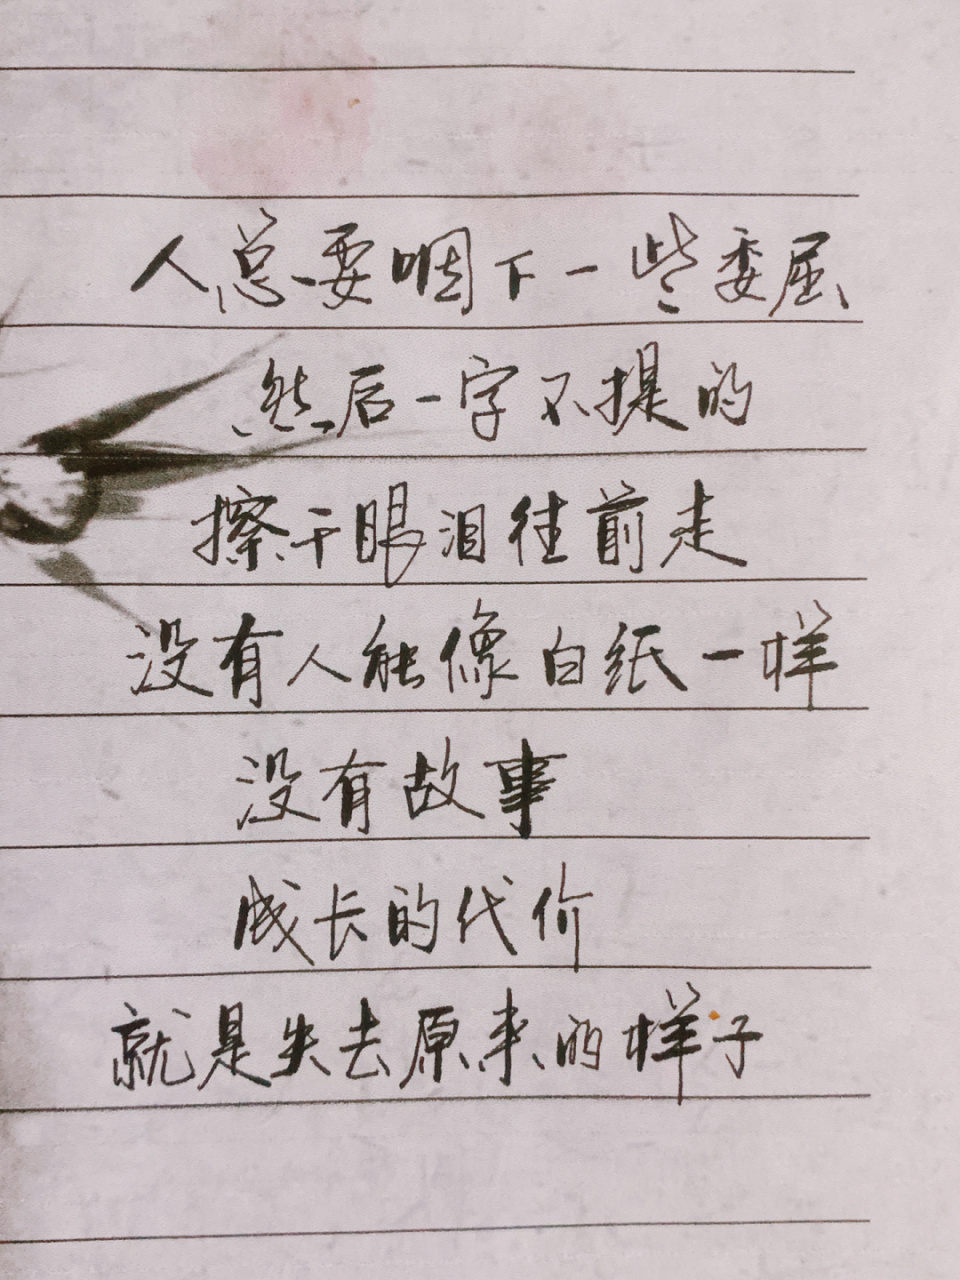 人总要咽下一些委屈
然后一字不提的
擦干眼泪往前走
没有人能像白纸一样
没有故事
成长的代价
就是失去原来的样子